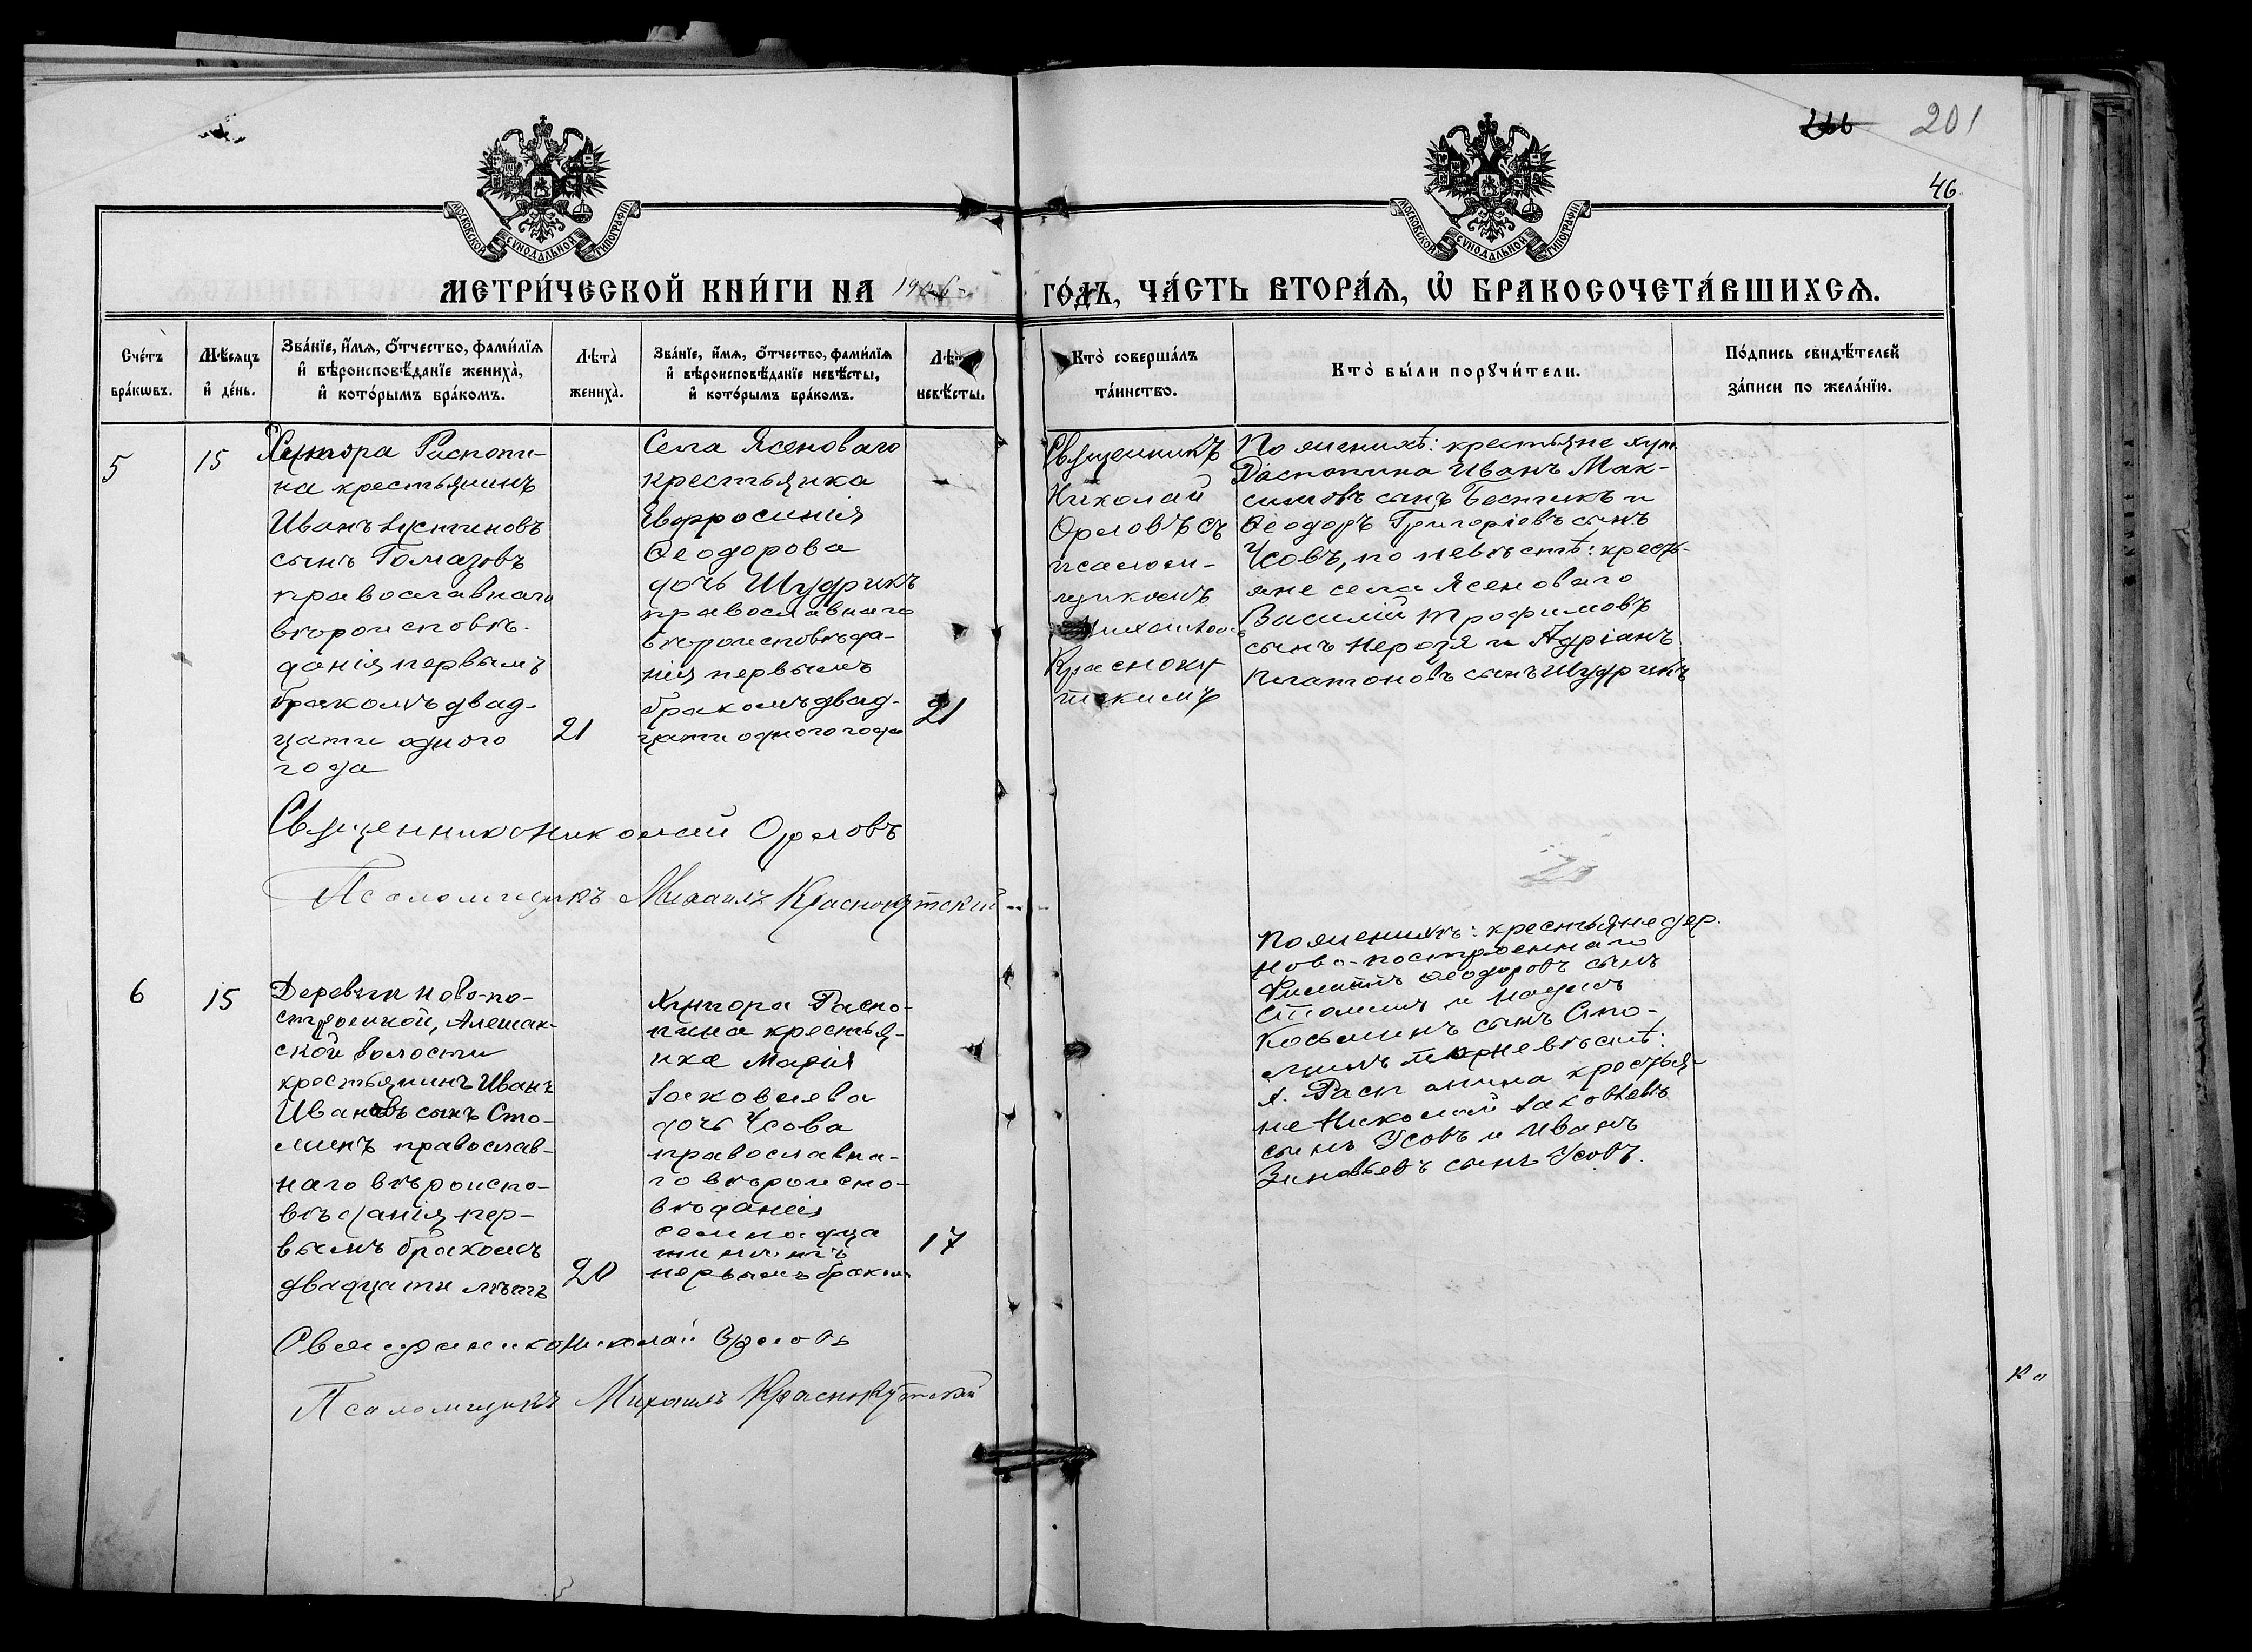 201
46
МОСКОВСКОЙ СѴНОДАЛЬНОЙ ТИПОГРАФІИ
МОСКОВСКОЙ СѴНОДАЛЬНОЙ ТИПОГРАФІИ
МЕТРИ́ЧЕСКОЙ КНИ́ГИ НА
ГО́ДЪ, ЧА́СТЬ ВТОРА́Ѧ, Ѡ БРАКОСОЧЕТА́ВШИХСѦ.
Сче́тъ бра́кѡвъ.
Мѣ́сяцъ и҆ де́нь.
Зва́нїе, и҆́мѧ, ѻ҆́тчество, фами́лїѧ и҆ вѣроисповѣ́данїе жениха̀, и҆ кото́рымъ бра́комъ.
Лѣта̀ жениха̀.
Зва́нїе, и҆́мѧ, ѻ҆́тчество, фами́лїѧ и҆ вѣроисповѣ́данїе невѣ́сты, и҆ кото́рымъ бра́комъ.
невѣ́сты.
Кто̀ соверша́лъ та́инство.
Кто̀ бы́ли порꙋчи́тели.
По́дпись свидѣ́телей за́писи по жела́нїю.
5
15
Хутора Распопи-
на крестьянинъ
Иванъ Іустиновъ
сынъ
православнаго
вѣроисповѣ-
данія первымъ
бракомъ двад-
цати одного
года
21
Села Ясеноваго
крестьянка
Евфросинія
Ѳеодорова
дочь Шудрикъ
православнаго
вѣроисповѣда-
нія первымъ
бракомъ двад-
цати одного года
21
Священникъ
Николай
Орловъ съ
псалом-
щикомъ
Михаиломъ
Краснокут-
скимъ
По женихѣ: крестьяне хут.
Распопина Иванъ Мак-
симовъ сынъ и
Ѳеодоръ Григоріевъ сынъ
Усовъ, по невѣстѣ: кресть-
яне села Ясеноваго
Василій Трофимовъ
сынъ и Адріанъ
Платоновъ сынъ Шудрикъ
Священникъ Николай Орловъ
Псаломщикъ Михаилъ Краснокутский
6
15
Деревни Ново-по-
строенной, Алешак-
ской волости
крестьянинъ Иванъ
Ивановъ сынъ Сто-
минъ православ-
наго вѣроиспо-
вѣданія пер-
вымъ бракомъ
двадцати лѣтъ
20
Хутора Распо-
пина крестья-
нка Марія
Іаковлева
дочь Усова
православна-
го вѣроиспо-
вѣданія
семнадца
ти лѣтъ
первымъ бракомъ
17
По женихѣ: крестьяне дер.
Ново-построеннаго
Ѳеодоровъ сынъ
Стоминъ и
Косьминъ сынъ Сто-
минъ по невѣстѣ:
х. Распопина крестья-
не Николай Іаковлевъ
сынъ Усовъ и Иванъ
Зиновьевъ сынъ Усовъ.
Священникъ Николай Орловъ
Псаломщикъ Михаилъ Краснокутский